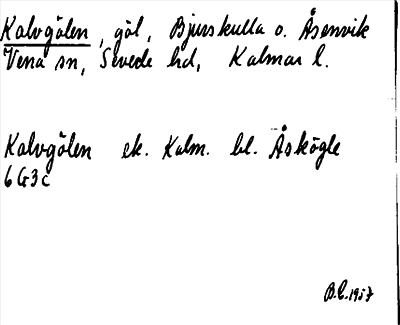 Kalvgölen, göl, Bjurskulla o. Åsenvik
Vena sn, Sevede hd, Kalmar l.
Kalvgölen ek. Kalm. bl. Åskögle
6G3c
B.E. 1957